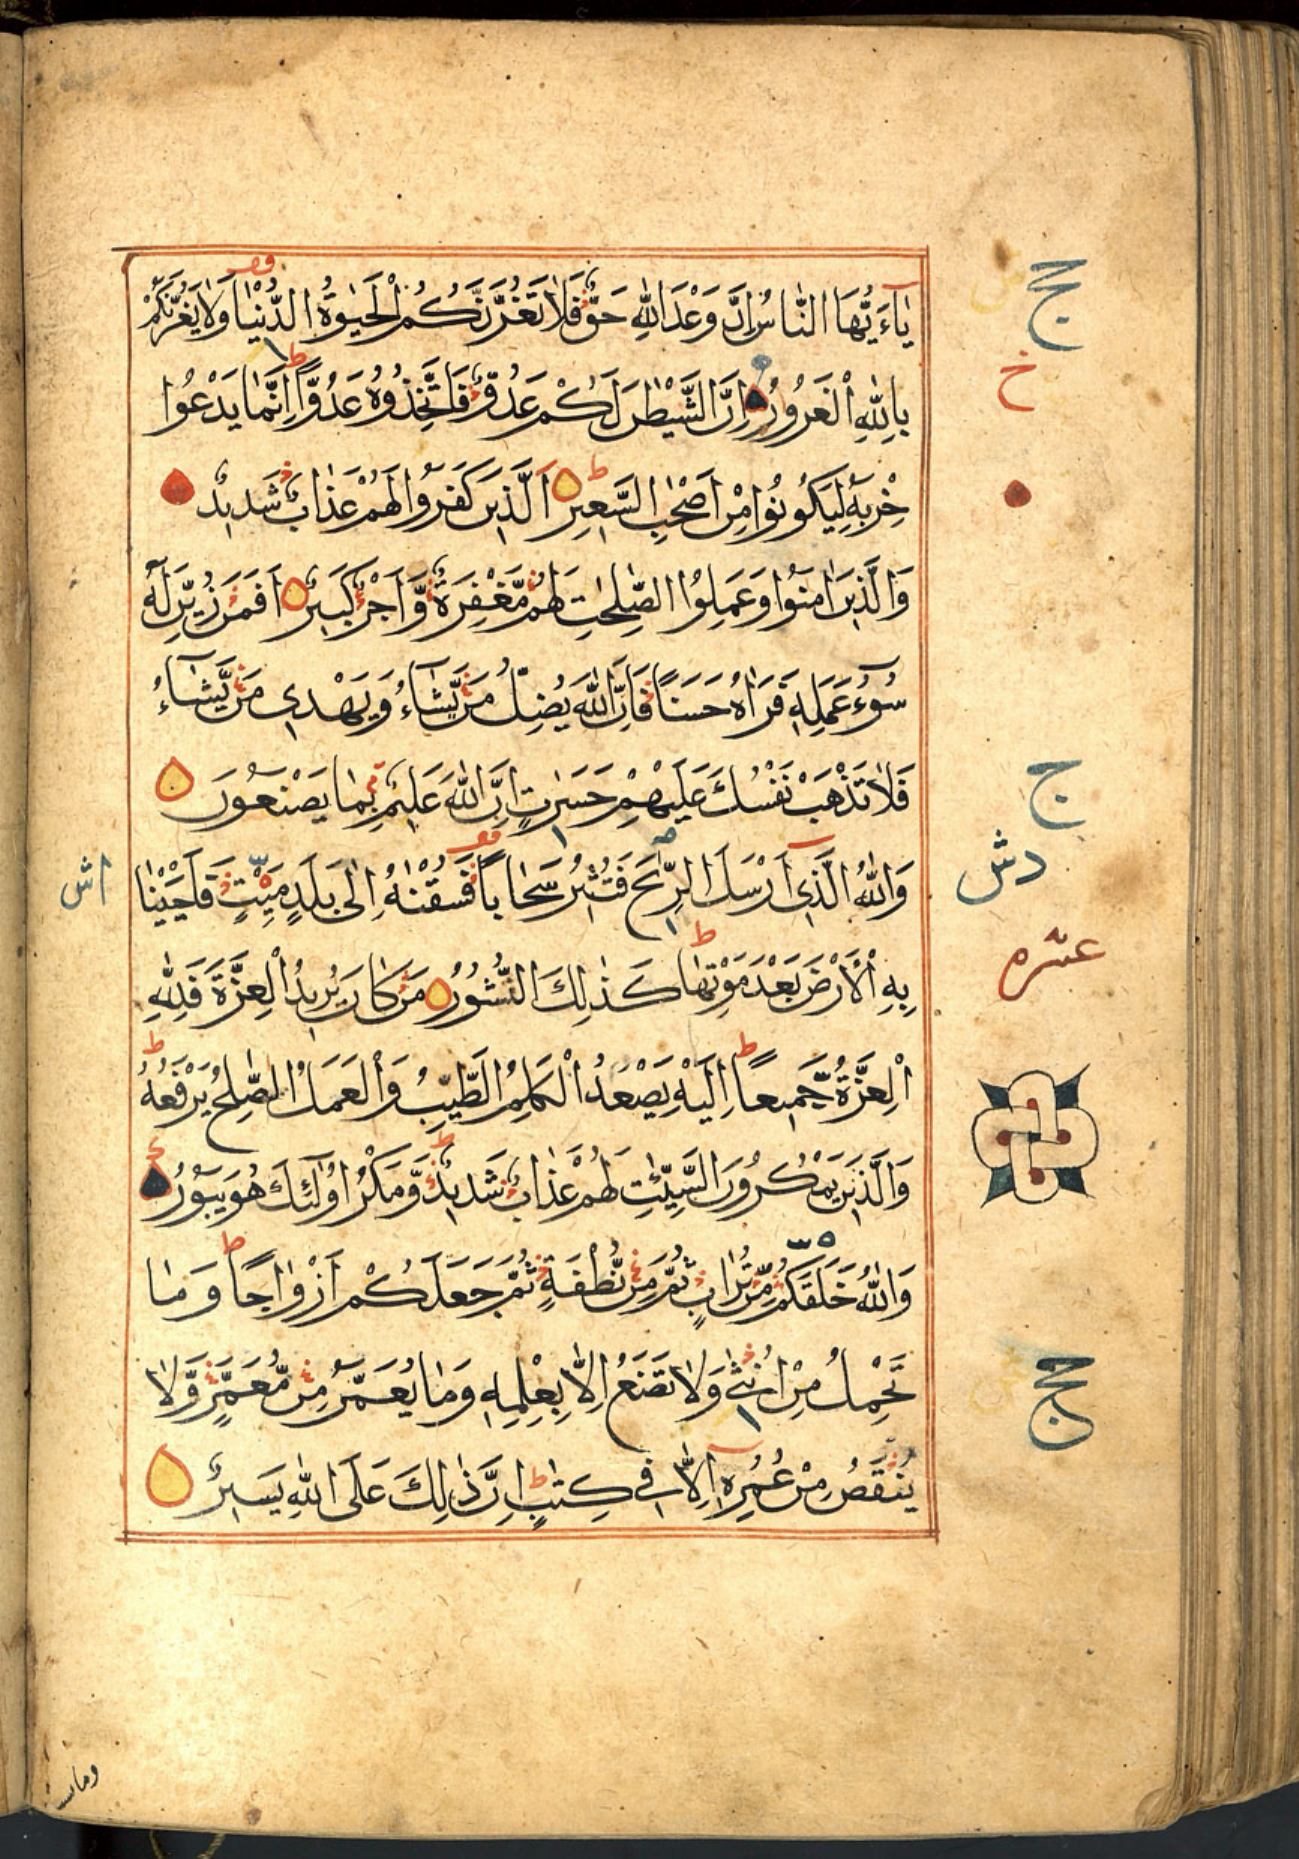 يٰاَءَيُّهَا النَّاسُ اِنَّ وَعْدَ اللّٰهِ حَقٌّ فَلَا تَغُرَّنَّكُمُ الْحَيٰوةُ الدُّنْيَا وَلَا يَغُرَّنَّكُمْ
بِاللّٰهِ الْغَرُورُ اِنَّ الشَّيْطٰنَ لَكُمْ عَدُوٌّ فَاتَّخِذُوهُ عَدُوًّا اِنَّمَا يَدْعُوا
حِزْبَهُ لِيَكُونُوا مِنْ اَصْحٰبِ السَّعِيرِ اَلَّذِينَ كَفَرُوا لَهُمْ عَذَابٌ شَدِيدٌ
وَالَّذِينَ اٰمَنُوا وَعَمِلُوا الصّٰلِحٰتِ لَهُمْ مَّغْفِرَةٌ وَّاَجْرٌ كَبِيرٌ اَفَمَنْ زُيِّنَ لَهُ
سُوٓءُ عَمَلِهٖ فَرَاٰهُ حَسَنًا فَاِنَّ اللّٰهَ يُضِلُّ مَنْ يَّشَآءُ وَيَهْدِى مَنْ يَّشَآءُ
فَلَا تَذْهَبْ نَفْسُكَ عَلَيْهِمْ حَسَرٰتٍ اِنَّ اللّٰهَ عَلِيمٌ بِمَا يَصْنَعُونَ
وَاللّٰهُ الَّذِى اَرْسَلَ الرِّيٰحَ فَتُثِيرُ سَحَابًا فَسُقْنٰهُ اِلٰى بَلَدٍ مَيِّتٍ فَاَحْيَيْنَا
بِهِ الْاَرْضَ بَعْدَ مَوْتِهَا كَذٰلِكَ النُّشُورُ مَنْ كَانَ يُرِيدُ الْعِزَّةَ فَلِلّٰهِ
الْعِزَّةُ جَمِيعًا اِلَيْهِ يَصْعَدُ الْكَلِمُ الطَّيِّبُ وَالْعَمَلُ الصّٰلِحُ يَرْفَعُهُ
وَالَّذِينَ يَمْكُرُونَ السَّيِّئٰتِ لَهُمْ عَذَابٌ شَدِيدٌ وَّمَكْرُ اُولٰٓئِكَ هُوَ يَبُورُ
وَاللّٰهُ خَلَقَكُمْ مِّنْ تُرَابٍ ثُمَّ مِنْ نُّطْفَةٍ ثُمَّ جَعَلَكُمْ اَزْوَاجًا وَمَا
تَحْمِلُ مِنْ اُنْثٰى وَلَا تَضَعُ اِلَّا بِعِلْمِهٖ وَمَا يُعَمَّرُ مِنْ مُّعَمَّرٍ وَّلَا
يُنْقَصُ مِنْ عُمُرِهٖ اِلَّا فِى كِتٰبٍ اِنَّ ذٰلِكَ عَلَى اللّٰهِ يَسِيرٌ
خ
ج
دش
اش
عشره